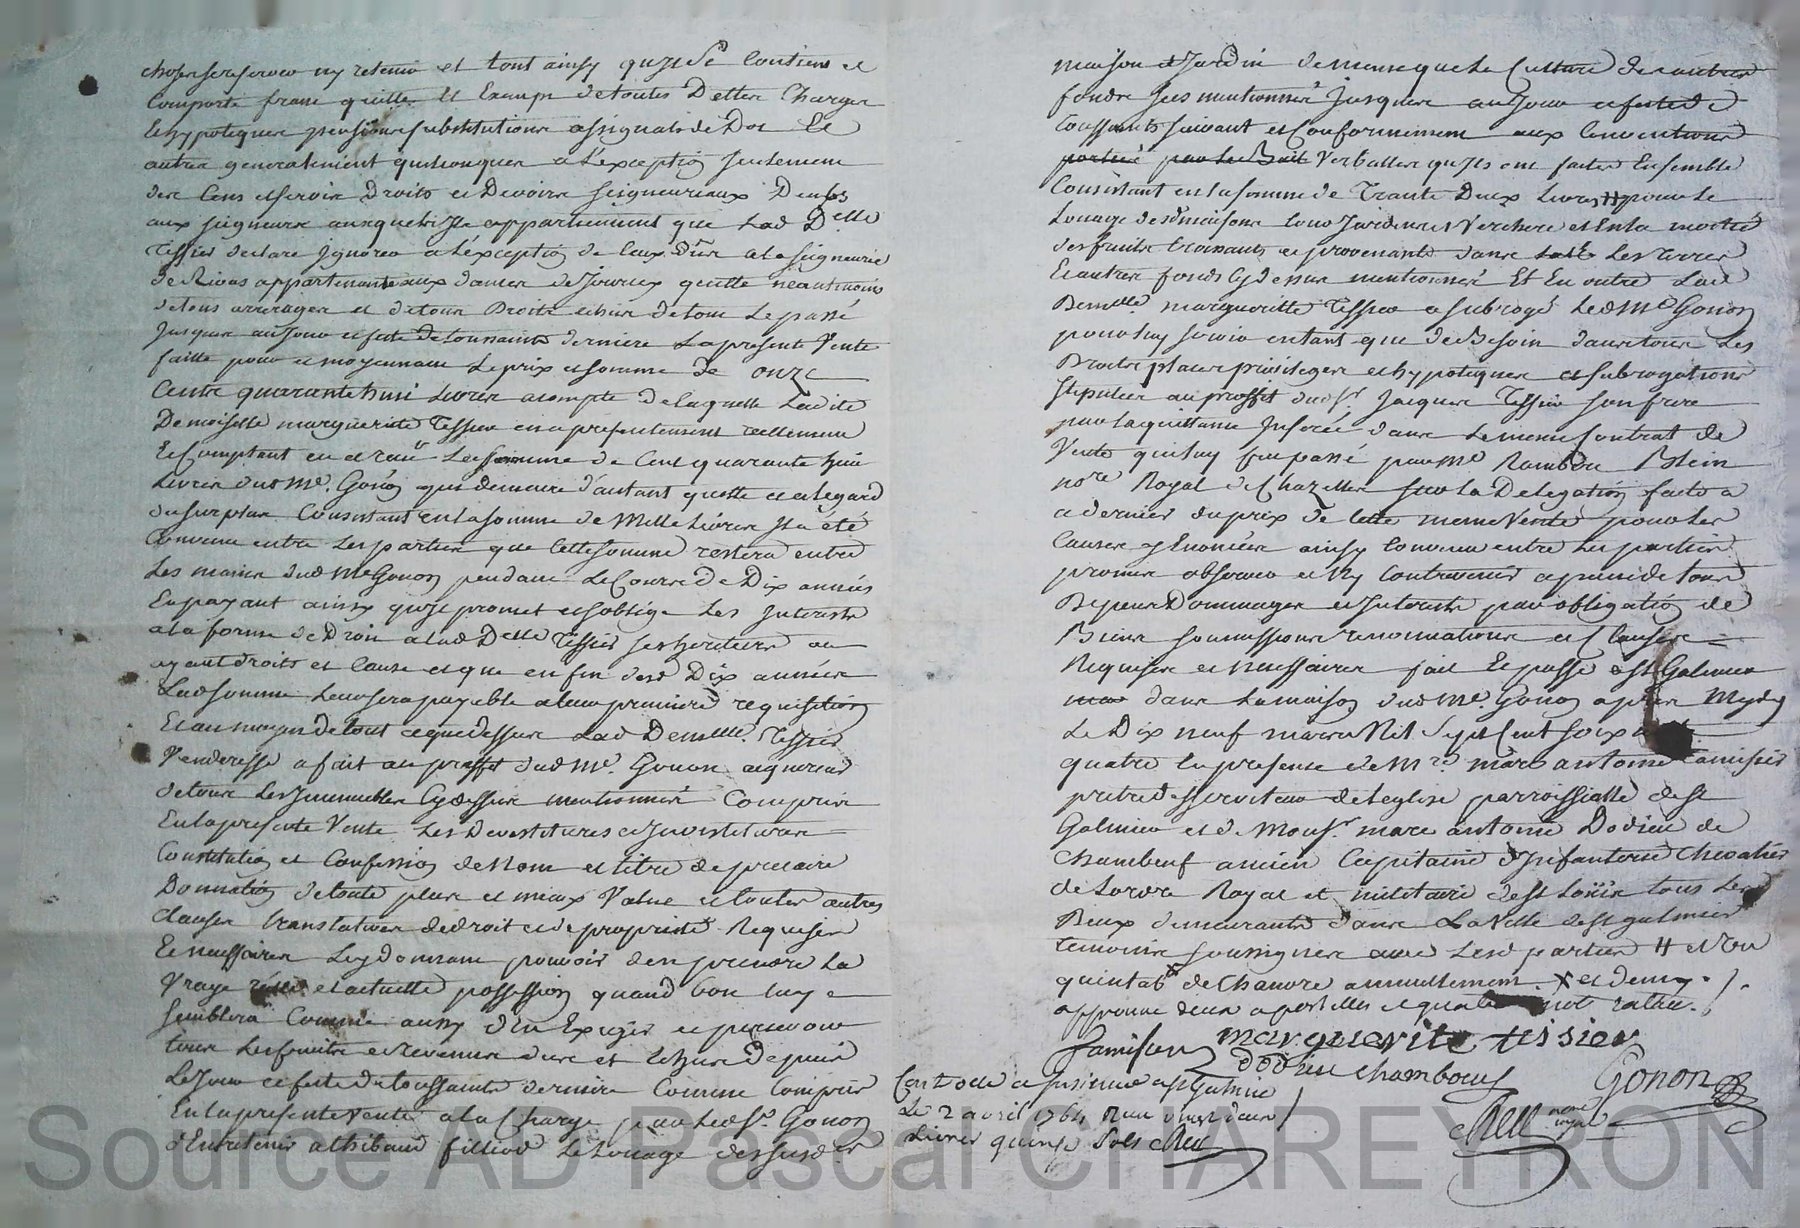 chose se reserver ny retenir et tout ainsy qu'il se contient et
Comporte franc quitte et Exempt de toutes Dettes Charges
hypoteques pensions substitutions assignats de Dot Et
autres generalement quelconques a l'exception seulement
des Cens et servis Droits et Devoirs seigneuriaux Deubs
aux seigneurs ausquels ils appartiennent que Lad Delle
Tessier declare Ignorer a l'exception de ceux dûs a la seigneurie
de Rivas appartenante aux dames de Jourcey quitte neantmoins
de tous arrerages et de tous Droits echus de tout Le passé
Jusques au Jour et feste de toussaints derniere La presente Vente
faitte pour et moyennant Le prix et somme de onze
Cents quarante huit Livres acompte de laquelle Ladite
Demoiselle marguerite Tessier en a presentement reellement
Et Comptant eu et reçu La somme de Cent quarante huit
Livres dud Me. Gonon qui demeure d'autant quitte et a legard
du surplus Consistant en la somme de Mille Livres Il a été
Convenu entre Les parties que cette somme restera entre
Les mains dud Me Gonon pendant Le Cours de Dix années
En payant ainsy qu'il promet et s'oblige Les Interests
a la forme de Droit a lad Delle Tessier ses heritiers ou
ayant droits et Cause et que en fin desd Dix années
Lad somme Leur sera payable a leur premiere requisition
Et au moyen de tout ce que dessus Lad Demlle. Tessier
Venderesse a fait au proffit dud Me. Gonon acquereur
de tous Les Immeubles Cy dessus mentionnés Compris
En la presente Vente Les Devestitures et Investitures
Constitution et Confession de Nom et titre de precaire
Donnation de toute plus et mieux Value et toutes autres
Clauses translatives de droit et de proprieté Requises
Et necessaires Luy donnant pouvoir d'en prendre La
Vraye réelle et actuelle possession quand bon luy
semblera Comme aussy d'En Exiger et percevoir
tous Les fruits et revenus dus et Echus Depuis
Le Jour et feste de toussaints derniere Comme Compris
En la presente Vente a la Charge par Led sr. Gonon
d'Entretenir a thibaud filliod Le Louage des susd
maison et Jardin de meme que la Culture des autres
fonds sus mentionnés Jusques au Jour et feste de
toussaints suivant et Conformement aux Conventions
portées par le Bail Verballes qu'ils ont faites Ensemble
Consistant en la somme de Trante Deux Livres # pour le
Louage desd maison Cour Jardin et Verchere et En la moitié
des fruits Croissants et provenants dans Les terres
Et autres fonds Cy dessus mentionnés Et En outre Lad
Demlle. margueritte Tessier a subrogé Led Me Gonon
pour luy servir en tant que de Besoin dans tous Les
Droits places privileges et hypoteques et subrogations
stipulées au proffit dud sr Jacques Tessier son frere
par la quittance Inserée dans Le meme Contrat de
Vente qui luy fut passé par Me Rambou Blein
nore Royal de Chazelles sur la Delegation faite a
a dernier du prix de Cette meme Vente pour les
Causes y Enoncées ainsy Convenu entre Les parties
promis observer et Ny Contrevenir a peine de tous
Depens Dommages et Interests par obligation de
Biens soumissions renonciations et Clauses
Requises et necessaires fait Et passé a St Galmier
dans La maison dud Me. Gonon apres Midy
Le Dix neuf mars Mil Sept Cent soix
quatre En presence de Mre. marc antoine Camisier
pretre desserviteur de l'eglise parroissialle de St
Galmier et de Monsr. marc antoine Dodieu de
Chambeuf ancien Capitaine d'Infanterie Chevalier
de Lordre Royal et militaire de St Louis tous Les
Deux demeurants dans La Ville de St galmier
temoins soussignés avec Lesd parties # et d'un
quintal de Chanvre annuellement. x et demy. /.
approuvé deux apostilles et quatre mot raturé. /.
marguerite tissier
dodieu chambœuf
Gonon
Controllé et Insinué a St Galmier
Le 2 avril 1764 Reçu vingt deux
Livres quinze sols
note royal
Source AD Pascal CHAREYRON